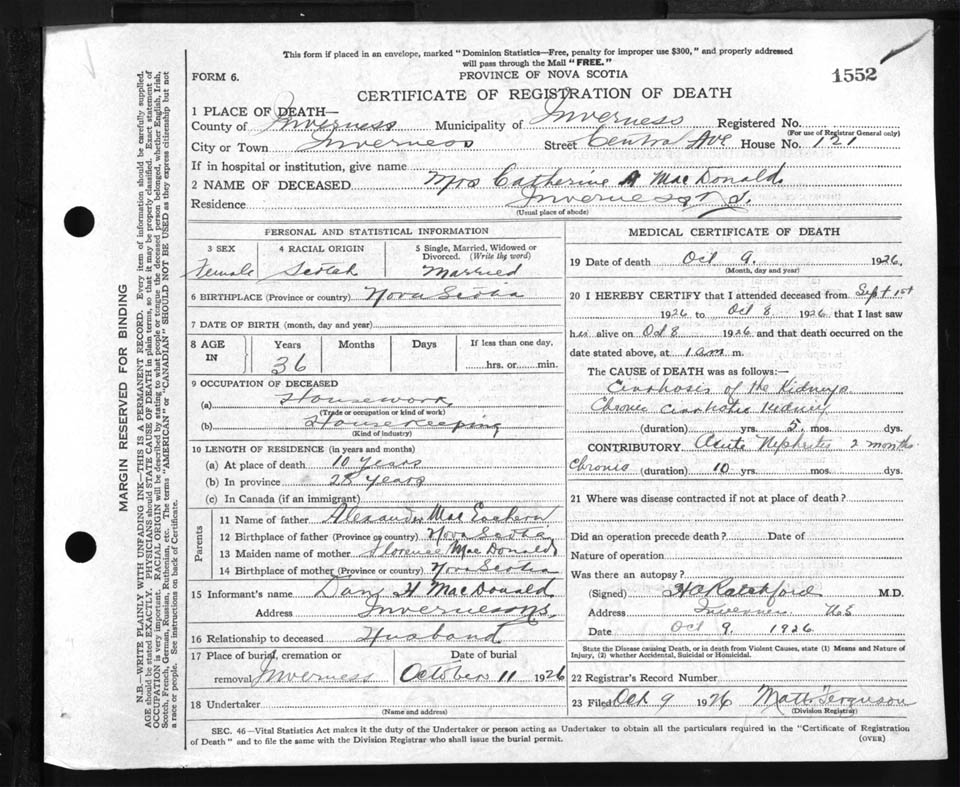 This form if placed in an envelope, marked "Dominion Statistics—Free, penalty for improper use $300," and properly addressed
will pass through the Mail "FREE."
FORM 6. PROVINCE OF NOVA SCOTIA 1552
CERTIFICATE OF REGISTRATION OF DEATH
1 PLACE OF DEATH—
County of Inverness Municipality of Inverness Registered No.
(For use of Registrar General only)
City or Town Inverness Street Central Ave House No. 121
If in hospital or institution, give name
2 NAME OF DECEASED Mrs Catherine A MacDonald
Residence Inverness N.S.
(Usual place of abode)
PERSONAL AND STATISTICAL INFORMATION
3 SEX 4 RACIAL ORIGIN 5 Single, Married, Widowed or
Divorced. (Write the word)
Female Scotch Married
6 BIRTHPLACE (Province or country) Nova Scotia
7 DATE OF BIRTH (month, day and year)
8 AGE IN Years Months Days If less than one day,
36 hrs. or min.
9 OCCUPATION OF DECEASED
(a) Housework
(Trade or occupation or kind of work)
(b) Housekeeping
(Kind of industry)
10 LENGTH OF RESIDENCE (in years and months)
(a) At place of death 10 years
(b) In province 28 years
(c) In Canada (if an immigrant)
Parents
11 Name of father Alexander MacEachern
12 Birthplace of father (Province or country) Nova Scotia
13 Maiden name of mother Florence MacDonald
14 Birthplace of mother (Province or country) Nova Scotia
15 Informant's name Dan H MacDonald
Address Inverness N.S.
16 Relationship to deceased Husband
17 Place of burial, cremation or Date of burial
removal Inverness October 11 1926
18 Undertaker
(Name and address)
MEDICAL CERTIFICATE OF DEATH
19 Date of death Oct 9. 1926.
(Month, day and year)
20 I HEREBY CERTIFY that I attended deceased from Sept 1st
1926 to Oct 8 1926 that I last saw
her alive on Oct 8 1926 and that death occurred on the
date stated above, at 1 am m.
The CAUSE of DEATH was as follows:—
Cirrhosis of the Kidneys
Chronic Cirrhotic Kidney
(duration) yrs. 5. mos. dys.
CONTRIBUTORY Acute Nephritis 2 months
Chronic (duration) 10 yrs. mos. dys.
21 Where was disease contracted if not at place of death?
Did an operation precede death? Date of
Nature of operation
Was there an autopsy?
(Signed) Ratchford M.D.
Address Inverness N.S
Date Oct 9. 1926
State the Disease causing Death, or in death from Violent Causes, state (1) Means and Nature of
Injury, (2) whether Accidental, Suicidal or Homicidal.
22 Registrar's Record Number
23 Filed Oct 9 1926 Matt Ferguson
(Division Registrar)
SEC. 46—Vital Statistics Act makes it the duty of the Undertaker or person acting as Undertaker to obtain all the particulars required in the "Certificate of Registration
of Death" and to file the same with the Division Registrar who shall issue the burial permit. (OVER)
MARGIN RESERVED FOR BINDING
N.B.—WRITE PLAINLY WITH UNFADING INK—THIS IS A PERMANENT RECORD. Every item of information should be carefully supplied.
AGE should be stated EXACTLY. PHYSICIANS should STATE CAUSE OF DEATH in plain terms, so that it may be properly classified. Exact statement of
OCCUPATION is very important. RACIAL ORIGIN will be described by stating to what people or tongue the deceased person belonged, whether English, Irish,
Scotch, French, German, Russian, Ruthenian, etc. The terms "AMERICAN" or "CANADIAN" SHOULD NOT BE USED as they express citizenship but not
a race or people. See instructions on back of Certificate.